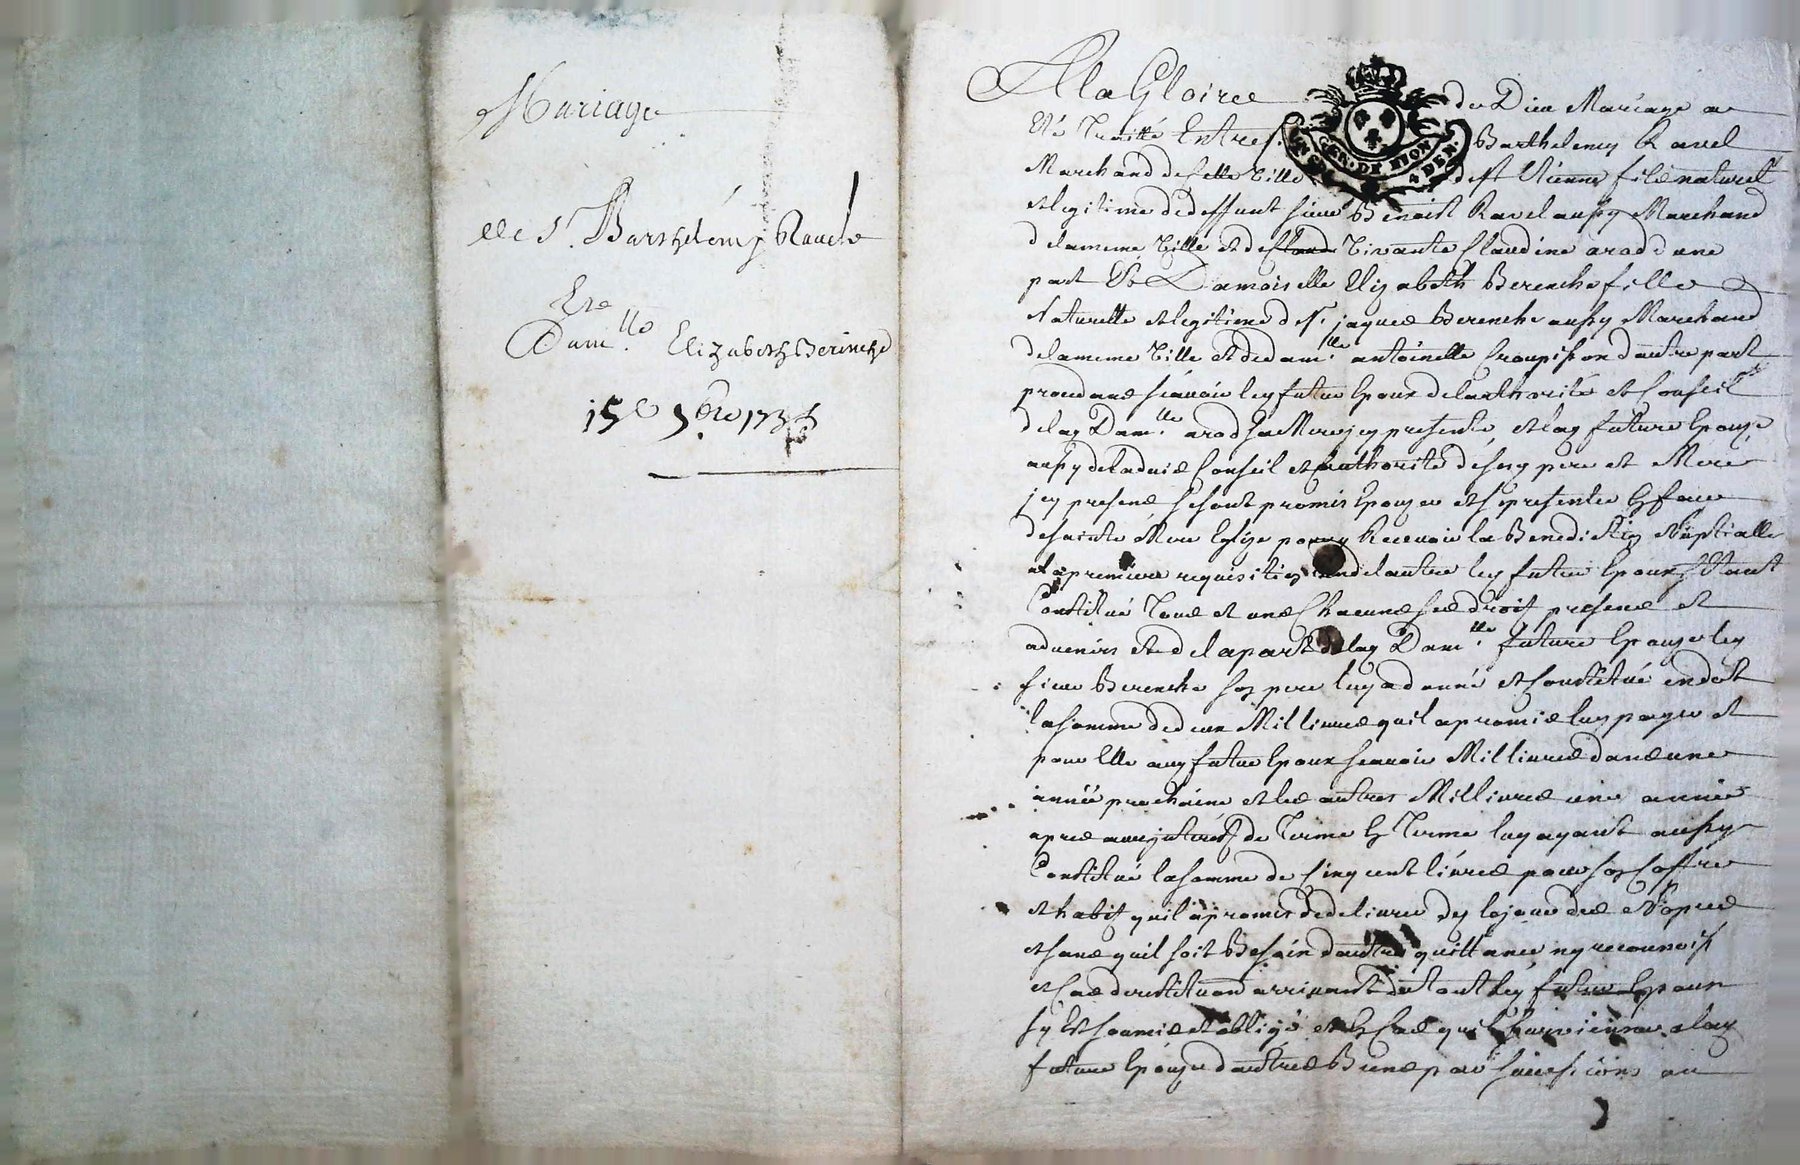 Mariage
de Sr. Barthelemy Ravel
Et
Dam.lle Elizabeth Berenche
15e 9bre 173
A la Gloire de Dieu Mariage a
Eté Traitté Entre Sr. Barthelemy Ravel
GEN. DE RION
4 DEN.
Marchand de cette Ville de St Etienne filz naturel
et legitime de deffunt sieur Benoist Ravel aussy Marchand
de la meme Ville et de vivante Claudine arod dune
part Et Damoiselle Elizabeth Berenche fille
Naturelle et legitime de Sr. jaques Berenche aussy Marchand
de la meme Ville et de dam.lle antoinette Croupisson dautre part
procedans scauoir ley futur Epoux de lauthorité et Conseil
de lay Dam.lle arod sa Mere jcy presente, et lay future Epouze
aussy de laduis Conseil et authorité de sey pere et Mere
jcy presens se sont promis Epouzer et se presenter En face
de sainte Mere Eglize pour y Receuoir la Benediction Nuptialle
a la premiere requisition de lautre ley futur Epoux sEtant
Constitué Tous et uns Chacuns ses droits presens et
aduenirs Et de la part de lay Dam.lle future Epouze ley
sieur Berenche son pere luy a donné et Constitué en dot
la somme de deux Mil liures quil a promis luy payer et
pour Elle auy futur Epoux scauoir Mil liures dans une
année prochaine et les autres Mil liures une année
apres auec jnterest de Terme En Terme luy ayant aussy
Constitué la somme de Cinq cent liures pour son Coffre
et habits quil a promis de deliurer dey le jour des Nopces
et sans quil soit Besoin dautre quittance ny reconnoiss
et Cas de restitution arriuant de tout ley futur Epoux
sy Est soumis et obligé et En Cas quil suruienne a lay
future Epouze dautres Biens par successions ou